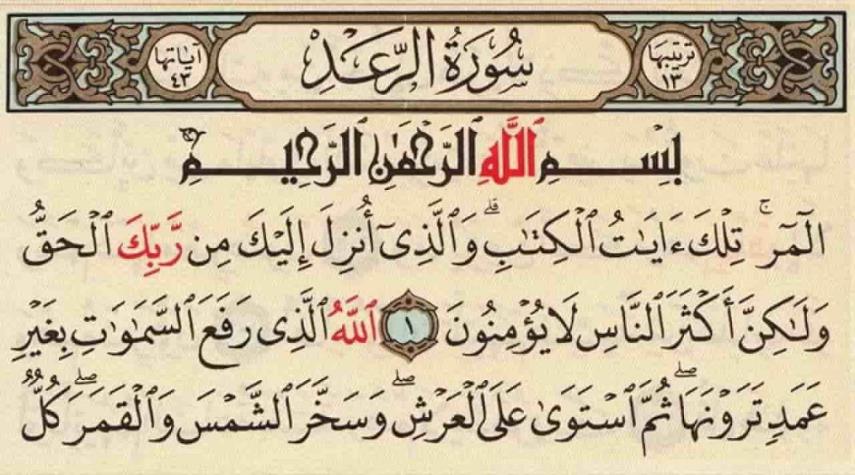 ترتيبها ١٣ سُورَةُ الرَّعْدِ آياتها ٤٣
بِسْمِ ٱللَّهِ ٱلرَّحْمَٰنِ ٱلرَّحِيمِ
الٓمٓرۚ تِلْكَ ءَايَٰتُ ٱلْكِتَٰبِۗ وَٱلَّذِىٓ أُنزِلَ إِلَيْكَ مِن رَّبِّكَ ٱلْحَقُّ
وَلَٰكِنَّ أَكْثَرَ ٱلنَّاسِ لَا يُؤْمِنُونَ ١ ٱللَّهُ ٱلَّذِى رَفَعَ ٱلسَّمَٰوَٰتِ بِغَيْرِ
عَمَدٍ تَرَوْنَهَاۖ ثُمَّ ٱسْتَوَىٰ عَلَى ٱلْعَرْشِۖ وَسَخَّرَ ٱلشَّمْسَ وَٱلْقَمَرَۖ كُلٌّ